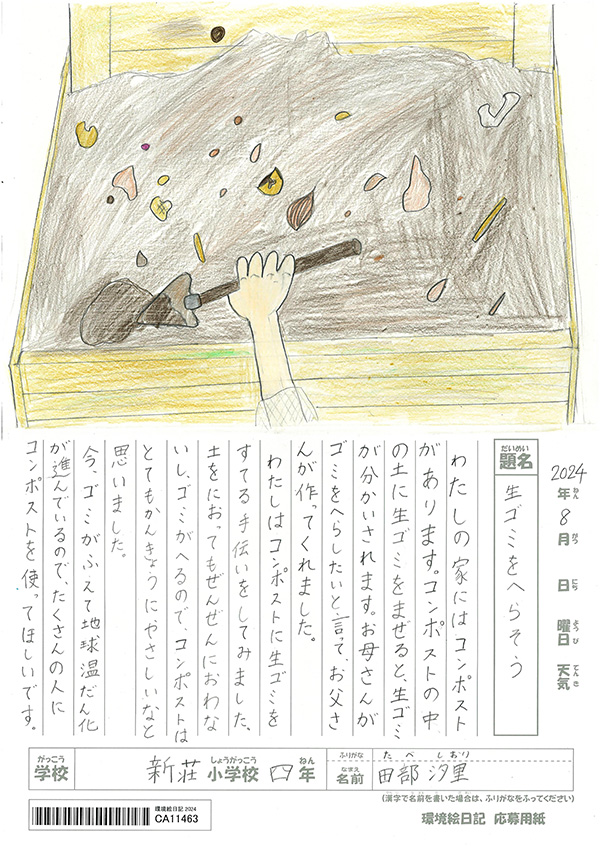 2024
年 8 月 日 曜日 天気
ねん がつ にち ようび てんき
だいめい
題名
生ゴミをへらそう
わたしの家にはコンポスト
があります。コンポストの中
の土に生ゴミをまぜると、生ゴミ
が分かいされます。お母さんが
ゴミをへらしたいと言って、お父さ
んが作ってくれました。
わたしはコンポストに生ゴミを
すてる手伝いをしてみました。
土をにおってもぜんぜんにおわな
いし、ゴミがへるので、コンポストは
とてもかんきょうにやさしいなと
思いました。
今、ゴミがふえて地球温だん化
が進んでいるので、たくさんの人に
コンポストを使ってほしいです。
がっこう しょうがっこう ねん
学校 新荘 小学校 四 年
ふりがな たべ しおり
なまえ
名前 田部 汐里
(漢字で名前を書いた場合は、ふりがなをふってください)
環境絵日記 2024
CA11463
環境絵日記 応募用紙